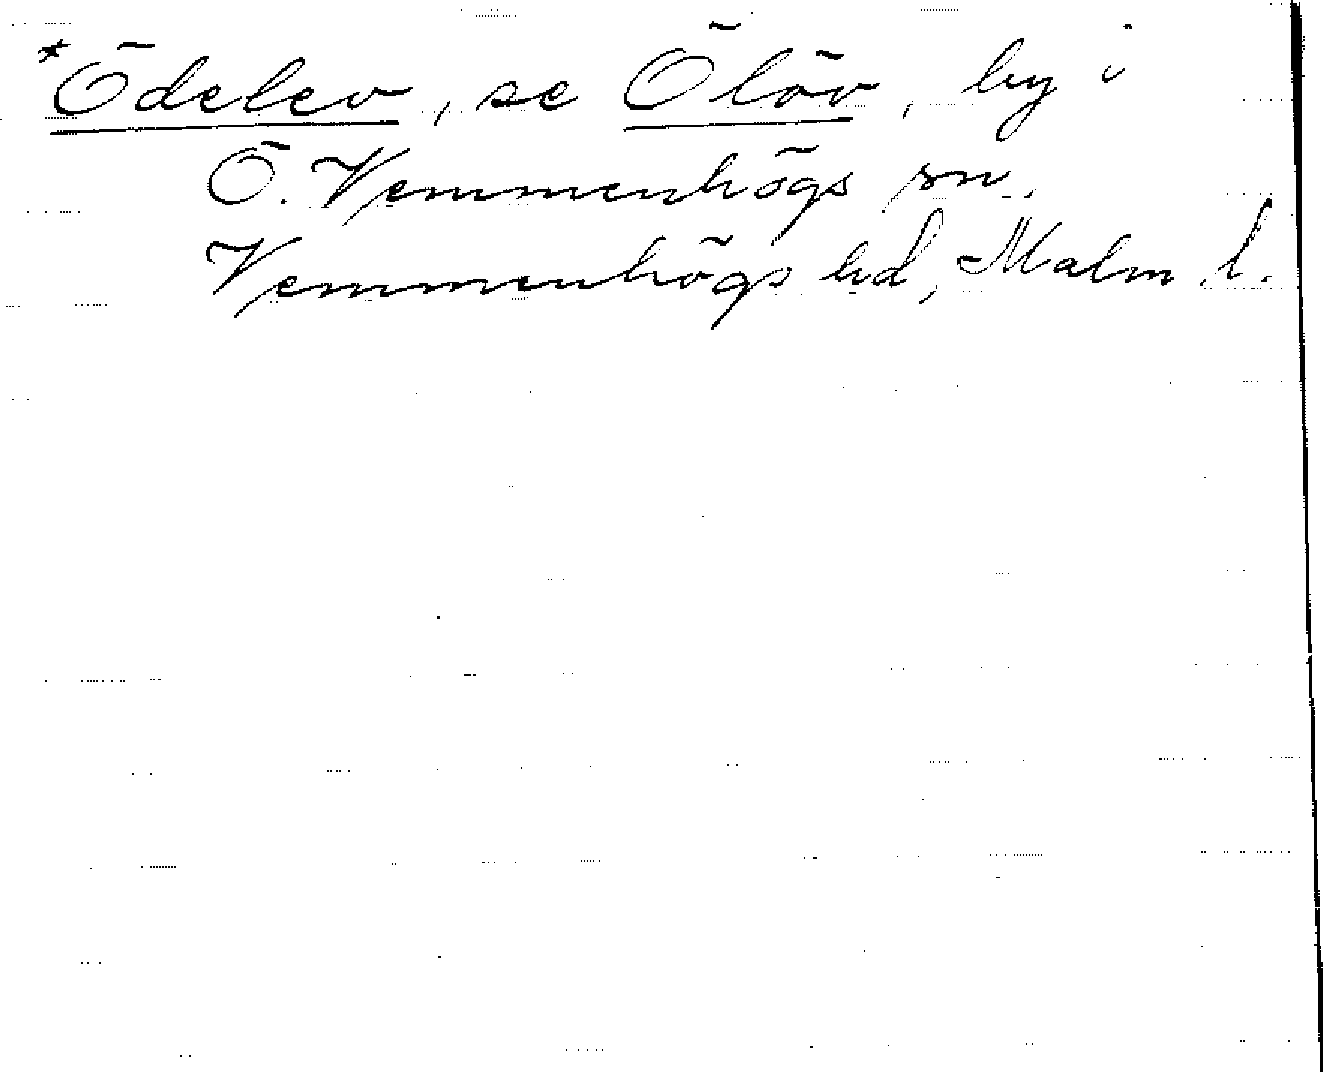 *Ödelev, se Ölöv, by i
Ö. Vemmenhögs sn.
Vemmenhögs hd, Malm l.